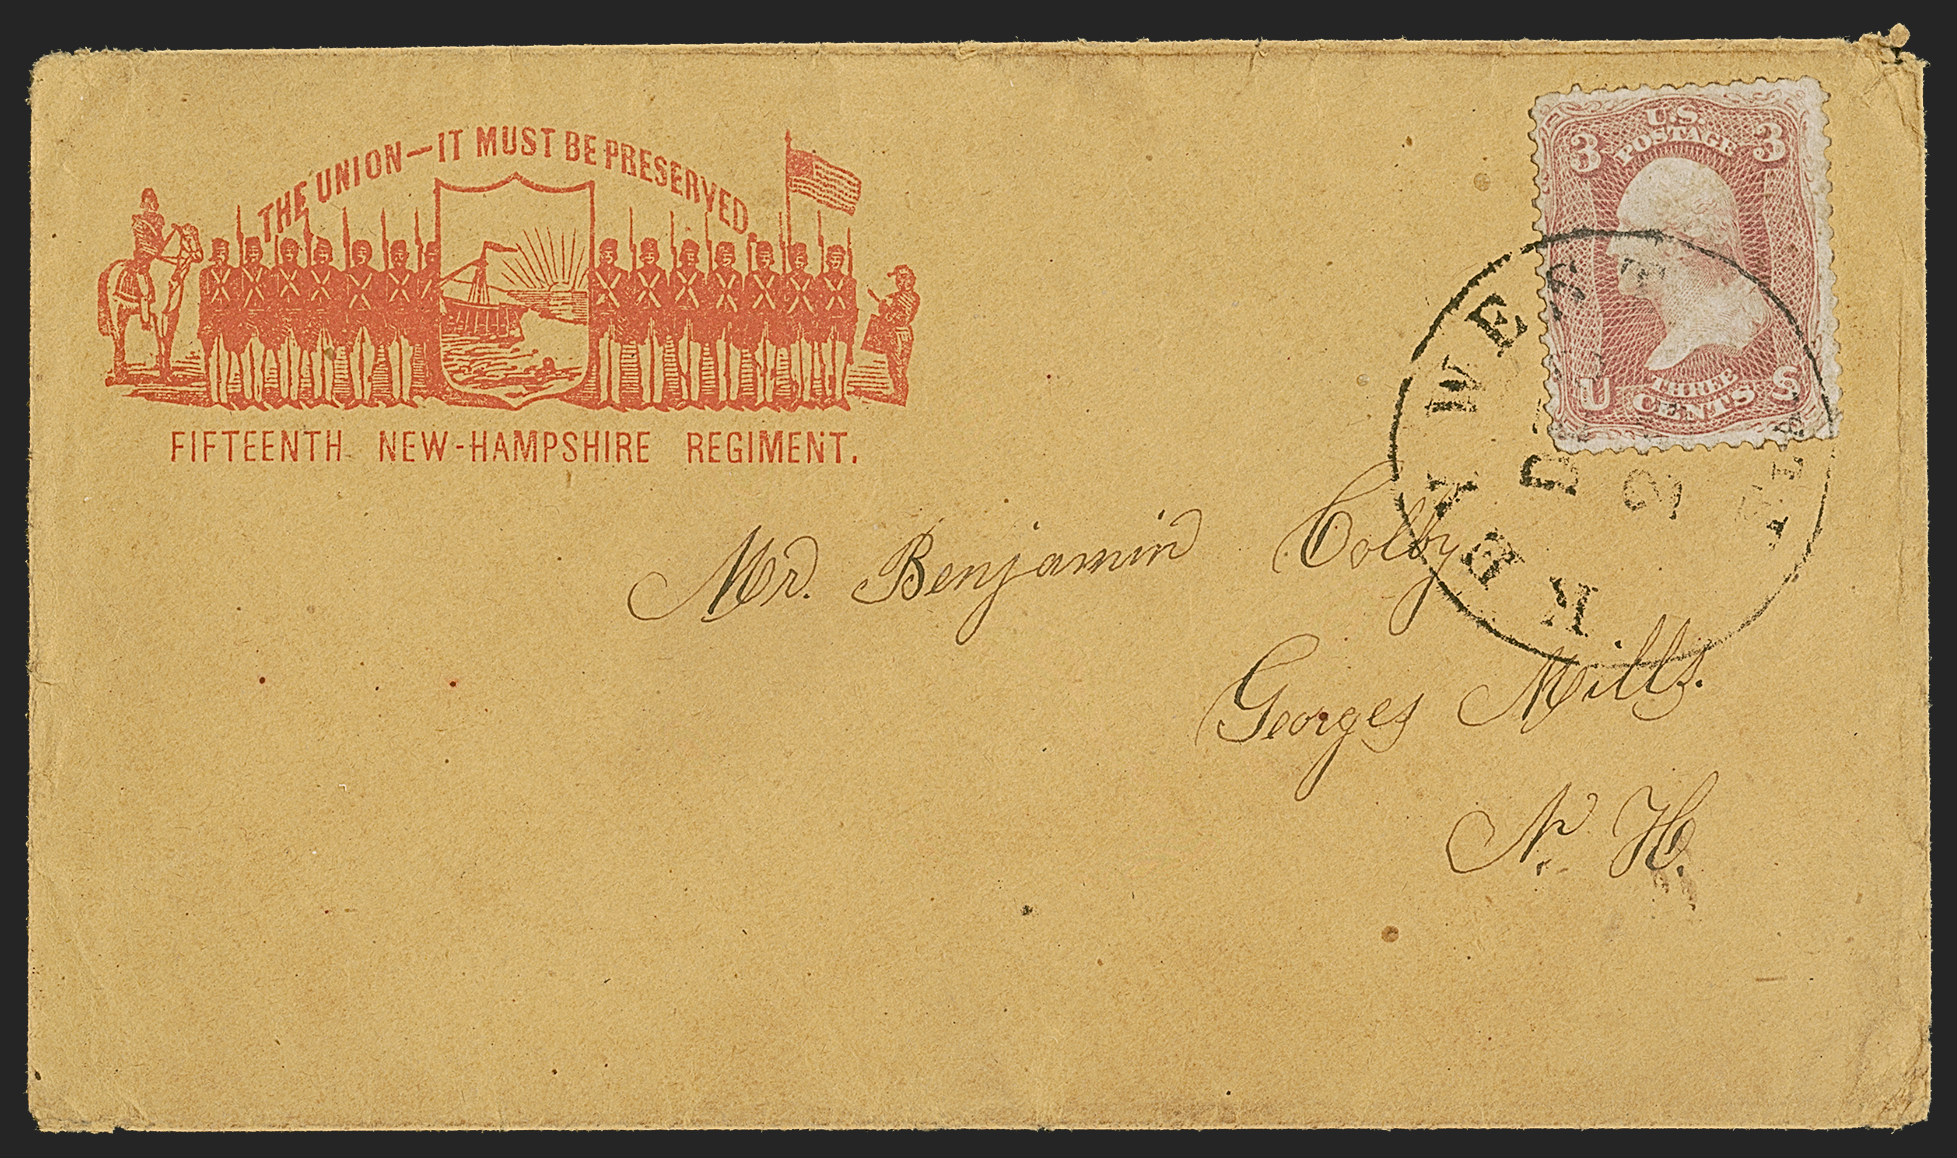 THE UNION—IT MUST BE PRESERVED.
FIFTEENTH NEW-HAMPSHIRE REGIMENT.
U.S.
POSTAGE
3 3
U THREE S
CENTS
KEY WEST FLA
Mr. Benjamin Colby
Georges Mills.
N. H.